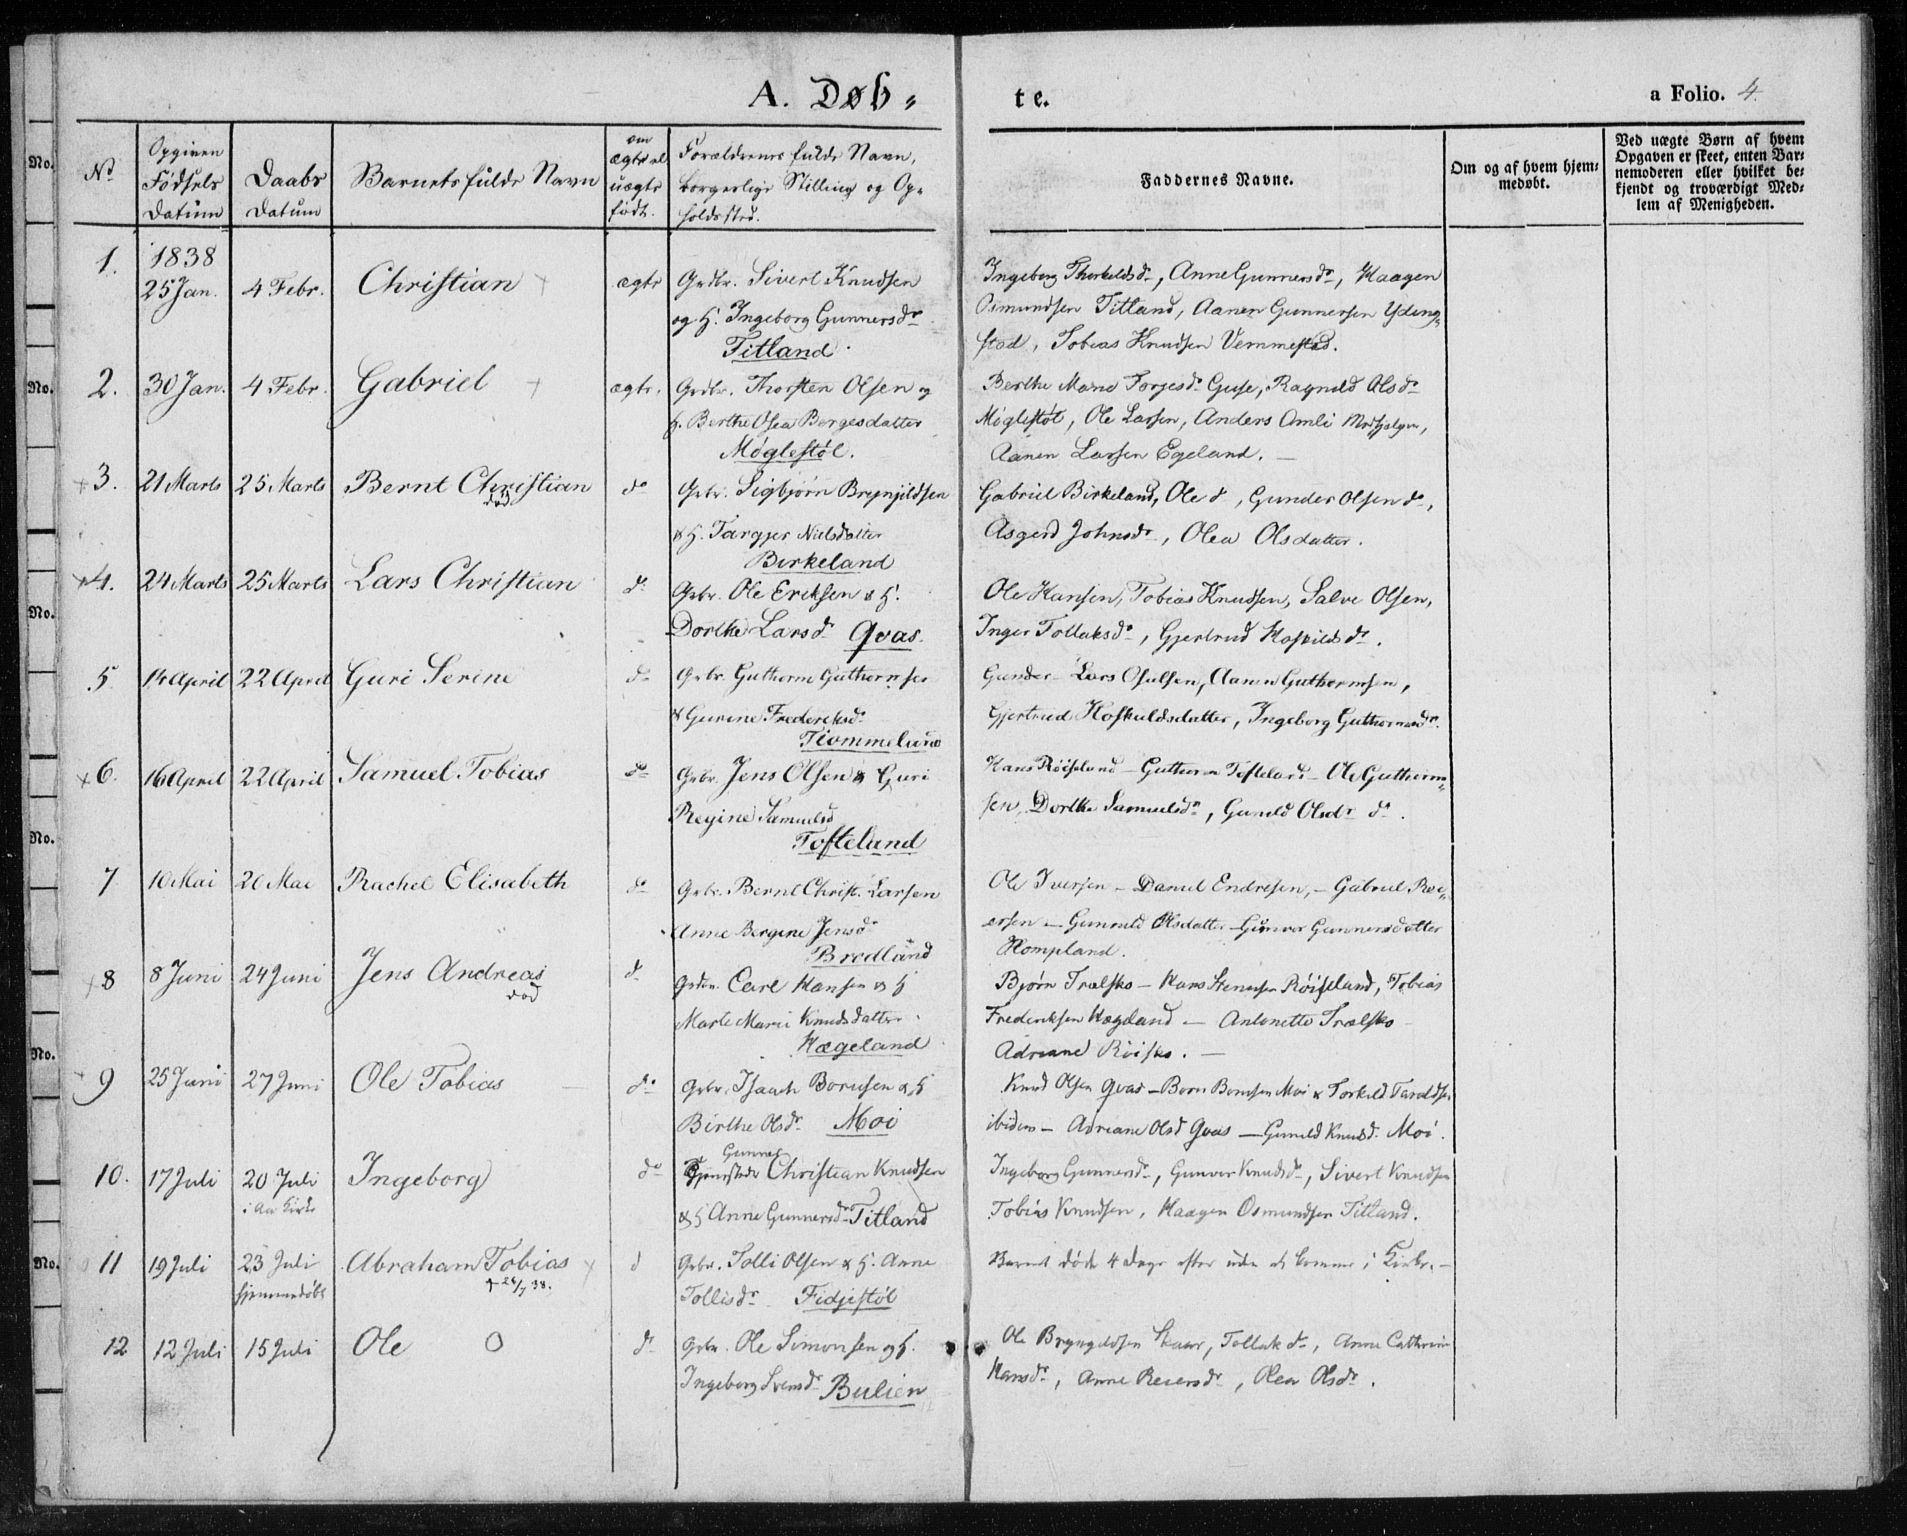 A. Døb-
te.
a Folio. 4.
No
Opgiven Fødsels Datum
Daabs Datum
Barnets fulde Navn
om ægte el uægte født.
Forældrenes fulde Navn, borgerlige Stilling og Opholdssted.
Faddernes Navne.
Om og af hvem hjemmedøbt.
Ved uægte Børn af hvem Opgaven er skeet, enten Barnemoderen eller hvilket bekjendt og troværdigt Medlem af Menigheden.
1. 1838 25 Jan. 4 Febr. Christian ægte Grdbr. Sivert Knudsen
og H. Ingeborg Gunnersdr
Titland.
Ingeborg Thorkeldsdr, Anne Gunnersdr, Haagen
Osmundsen Titland, Aanen Gunnersen Ydeng-
stad, Tobias Knudsen Vemmestad.
2. 30 Jan. 4 Febr. Gabriel ægte. Grdbr. Thorsten Olsen og
H. Berthe Olea Børgesdatter
Møglestøl.
Berthe Marie Torgesdr Guse, Ragnild Olsdr
Møglestøl, Ole Larsen, Anders Omli
Aanen Larsen Egeland.
3. 21 Marts 25 Marts Bernt Christian
død
do Grbr. Sigbjørn Brynjildsen
& H. Targjer Nielsdatter
Birkeland
Gabriel Birkeland, Ole do, Gunder Olsen do,
Asgerd Johnsdr, Olea Olsdatter.
4. 24 Marts 25 Marts Lars Christian do Grbr. Ole Eriksen & H.
Dorthe Larsdr Qvas.
Ole Hansen, Tobias Knudsen, Salve Olsen,
Inger Tollaksdr, Gjertrud Hoskildsdr.
5 14 April 22 April Guri Serine do Grbr. Guthorm Guthormsen
& Gurine Frederiksdr
Tiommelund
Gunder Lars Osulsen, Aanen Guthormsen,
Gjertrud Hoskuldsdatter, Ingeborg Guthormsdr.
6. 16 April 22 April Samuel Tobias do Grbr. Jens Olsen & Guri
Regine Samuelsd
Tofteland
Hans Røiseland - Guthorm Tofteland - Ole Guthorm-
sen, Dorthe Samuelsdr, Gunild Olsdr do.
7 10 Mai 20 Mai Rachel Elisabeth do Grbr. Bernt Christ. Larsen
Anne Bergine Jensd
Bredland
Ole Iversen - Daniel Endresen, - Gabriel Rei-
ersen - Gunvald Olsdatter - Gunvor Gunnersdatter
Hompland.
8 8 Juni 24 Juni Jens Andreas
død
do Grdbr. Carl Hansen & H
Marte Marie Knudsdatter.
Hægeland
Bjørn Trælsko - Hans Stenersen Røiseland, Tobias
Frederiksen Hægeland - Antonette Trælsko -
Adriane Røisko. -
9 25 Juni 27 Juni Ole Tobias do Grbr. Isaach Borusen & H
Birthe Olsdr Moi
Knud Olsen Qvas - Borr Borusen Moi & Torkild Taraldsen
ibidem - Adriane Olsd Qvas - Gunild Knudsd. Moi.
10. 17 Juli 20 Juli
i Aa Kirke
Ingeborg do Gunner
Christian Knudsen
& H Anne Gunnersdr Titland
Ingeborg Gunnersdr, Gunvor Knudsdr, Sivert Knudsen
Tobias Knudsen, Haagen Osmundsen Titland.
11 19 Juli 23 Juli
hjemmedøbt
Abraham Tobias
† 26/7 38.
d Grbr. Tolli Olsen & H. Anne
Tollisdr Fidjestøl
Barnet døde 4 Dage efter uden at komme i Kirke. -
12 12 Juli 15 Juli Ole O do Grbr. Ole Simonsen og H.
Ingeborg Svensdr Bulien
Ole Bryngeldsen Skaar, Tollak do, Anne Cathrine
Hansdr, Anne Reiersdr, Olea Olsdr.
No.
No.
No.
No.
No.
No.